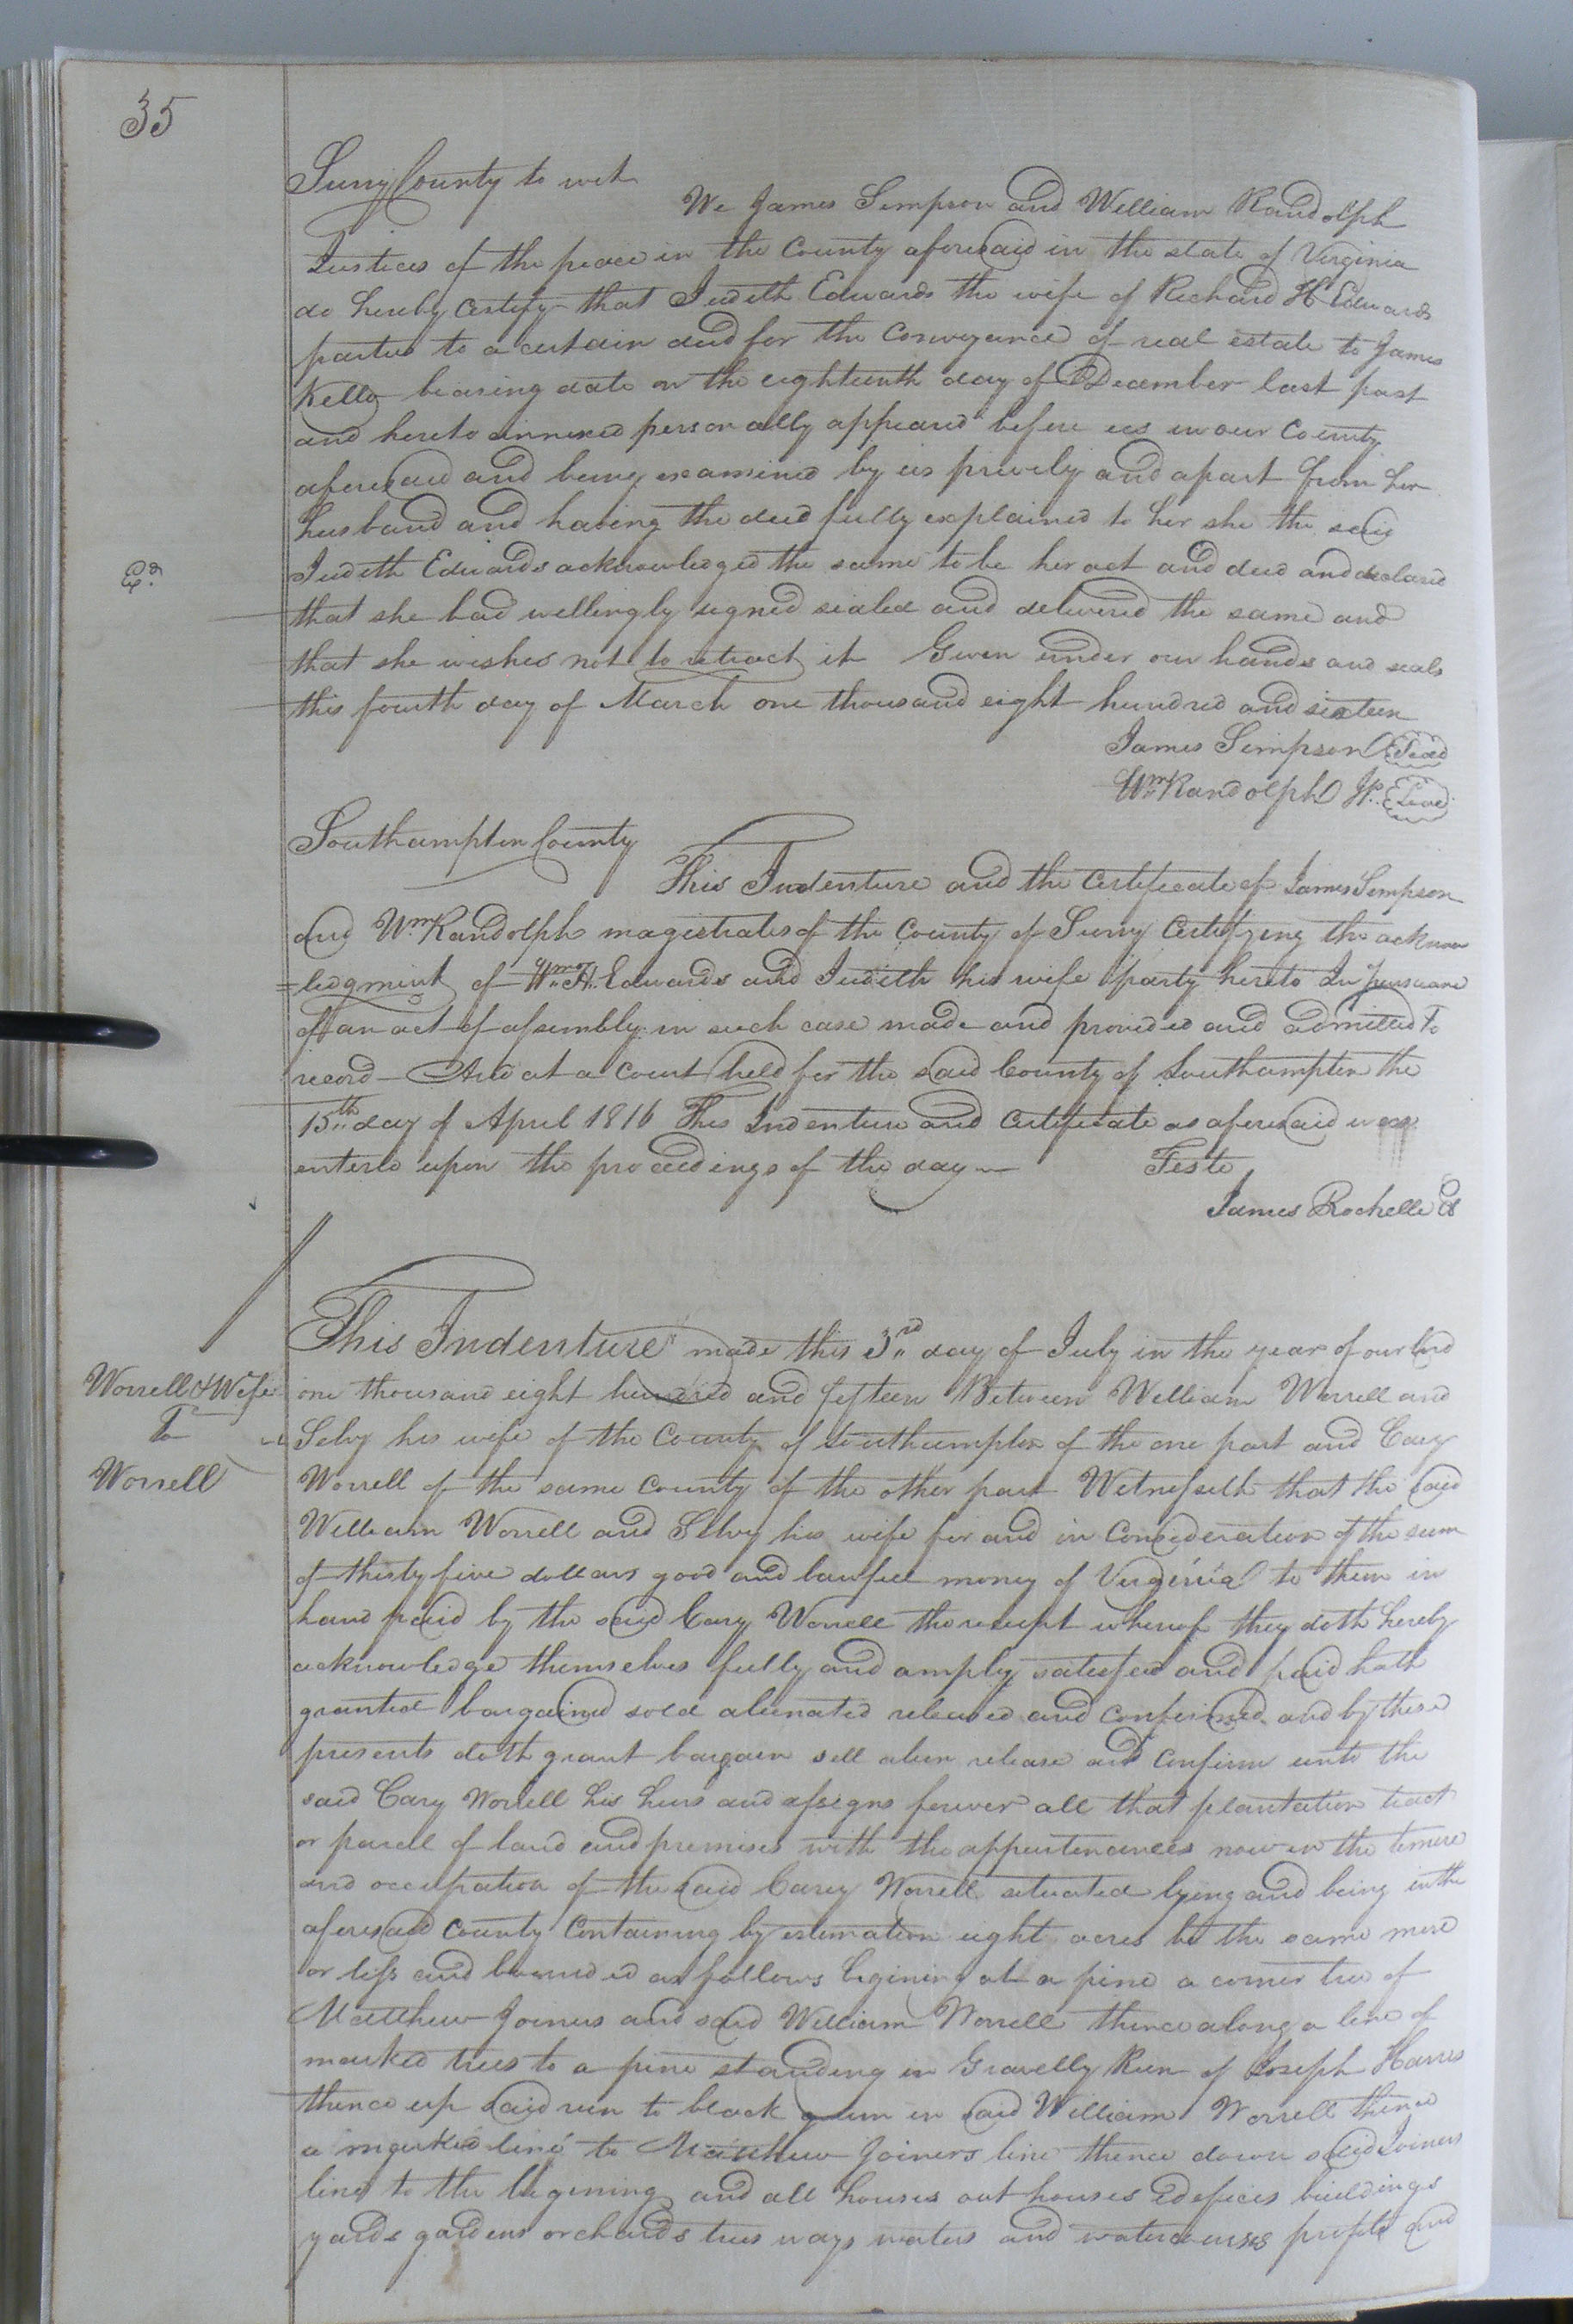 35
Surry County to wit
We James Simpson and William Randolph
Justices of the peace in the County aforesaid in the state of Virginia
do hereby certify that Judith Edwards the wife of Richard H Edwards
parties to a certain deed for the conveyance of real estate to James
Kello bearing date on the eighteenth day of December last past
and hereto annexed personally appeared before us in our County
aforesaid and being examined by us privily and apart from her
husband and having the deed fully explained to her she the said
Judith Edwards acknowledged the same to be her act and deed and declared
that she had willingly signed sealed and delivered the same and
that she wishes not to retract it Given under our hands and seals
this fourth day of March one thousand eight hundred and sixteen
James Simpson Seal
Wm Randolph Jr. Seal
Southampton County
This Indenture and the Certificate of James Simpson
and Wm Randolph magistrates of the County of Surry Certifying the acknow
=ledgment of Edwards and Judith his wife party hereto In pursuance
of an act of assembly in such case made and provided and admitted to
record - And at a Court held for the said County of Southampton the
15th day of April 1816 This Indenture and Certificate as aforesaid was
entered upon the proceedings of the day
Teste
James Rochelle Cl
Worrell & Wife
To
Worrell
This Indenture made this 3rd day of July in the year of our lord
one thousand eight hundred and fifteen Between William Worrell and
Selvy his wife of the County of Southampton of the one part and Cary
Worrell of the same County of the other part Witnesseth that the said
William Worrell and Selvy his wife for and in Consideration of the sum
of thirty five dollars good and lawfull money of Virginia to them in
hand paid by the said Cary Worrell the receipt whereof they doth hereby
acknowledge themselves fully and amply satisfied and paid hath
granted bargained sold alienated released and confirmed and by these
presents doth grant bargain sell alien release and confirm unto the
said Cary Worrell his heirs and assigns forever all that plantation tract
or parcel of land and premises with the appurtenances now in the tenure
and occupation of the said Carey Worrell situated lying and being in the
aforesaid County Containing by estimation eight acres be the same more
or less and bounded as follows begining at a pine a corner tree of
Matthew Joiners and said William Worrell thence along a line of
marked trees to a pine standing in Gravelly Run of Joseph Harris
thence up said run to black gum in said William Worrell thence
a marked line to Matthew Joiners line thence down said Joiners
line to the begining and all houses out houses edefices buildings
yards gardens orchards trees ways waters and watercourses profits and